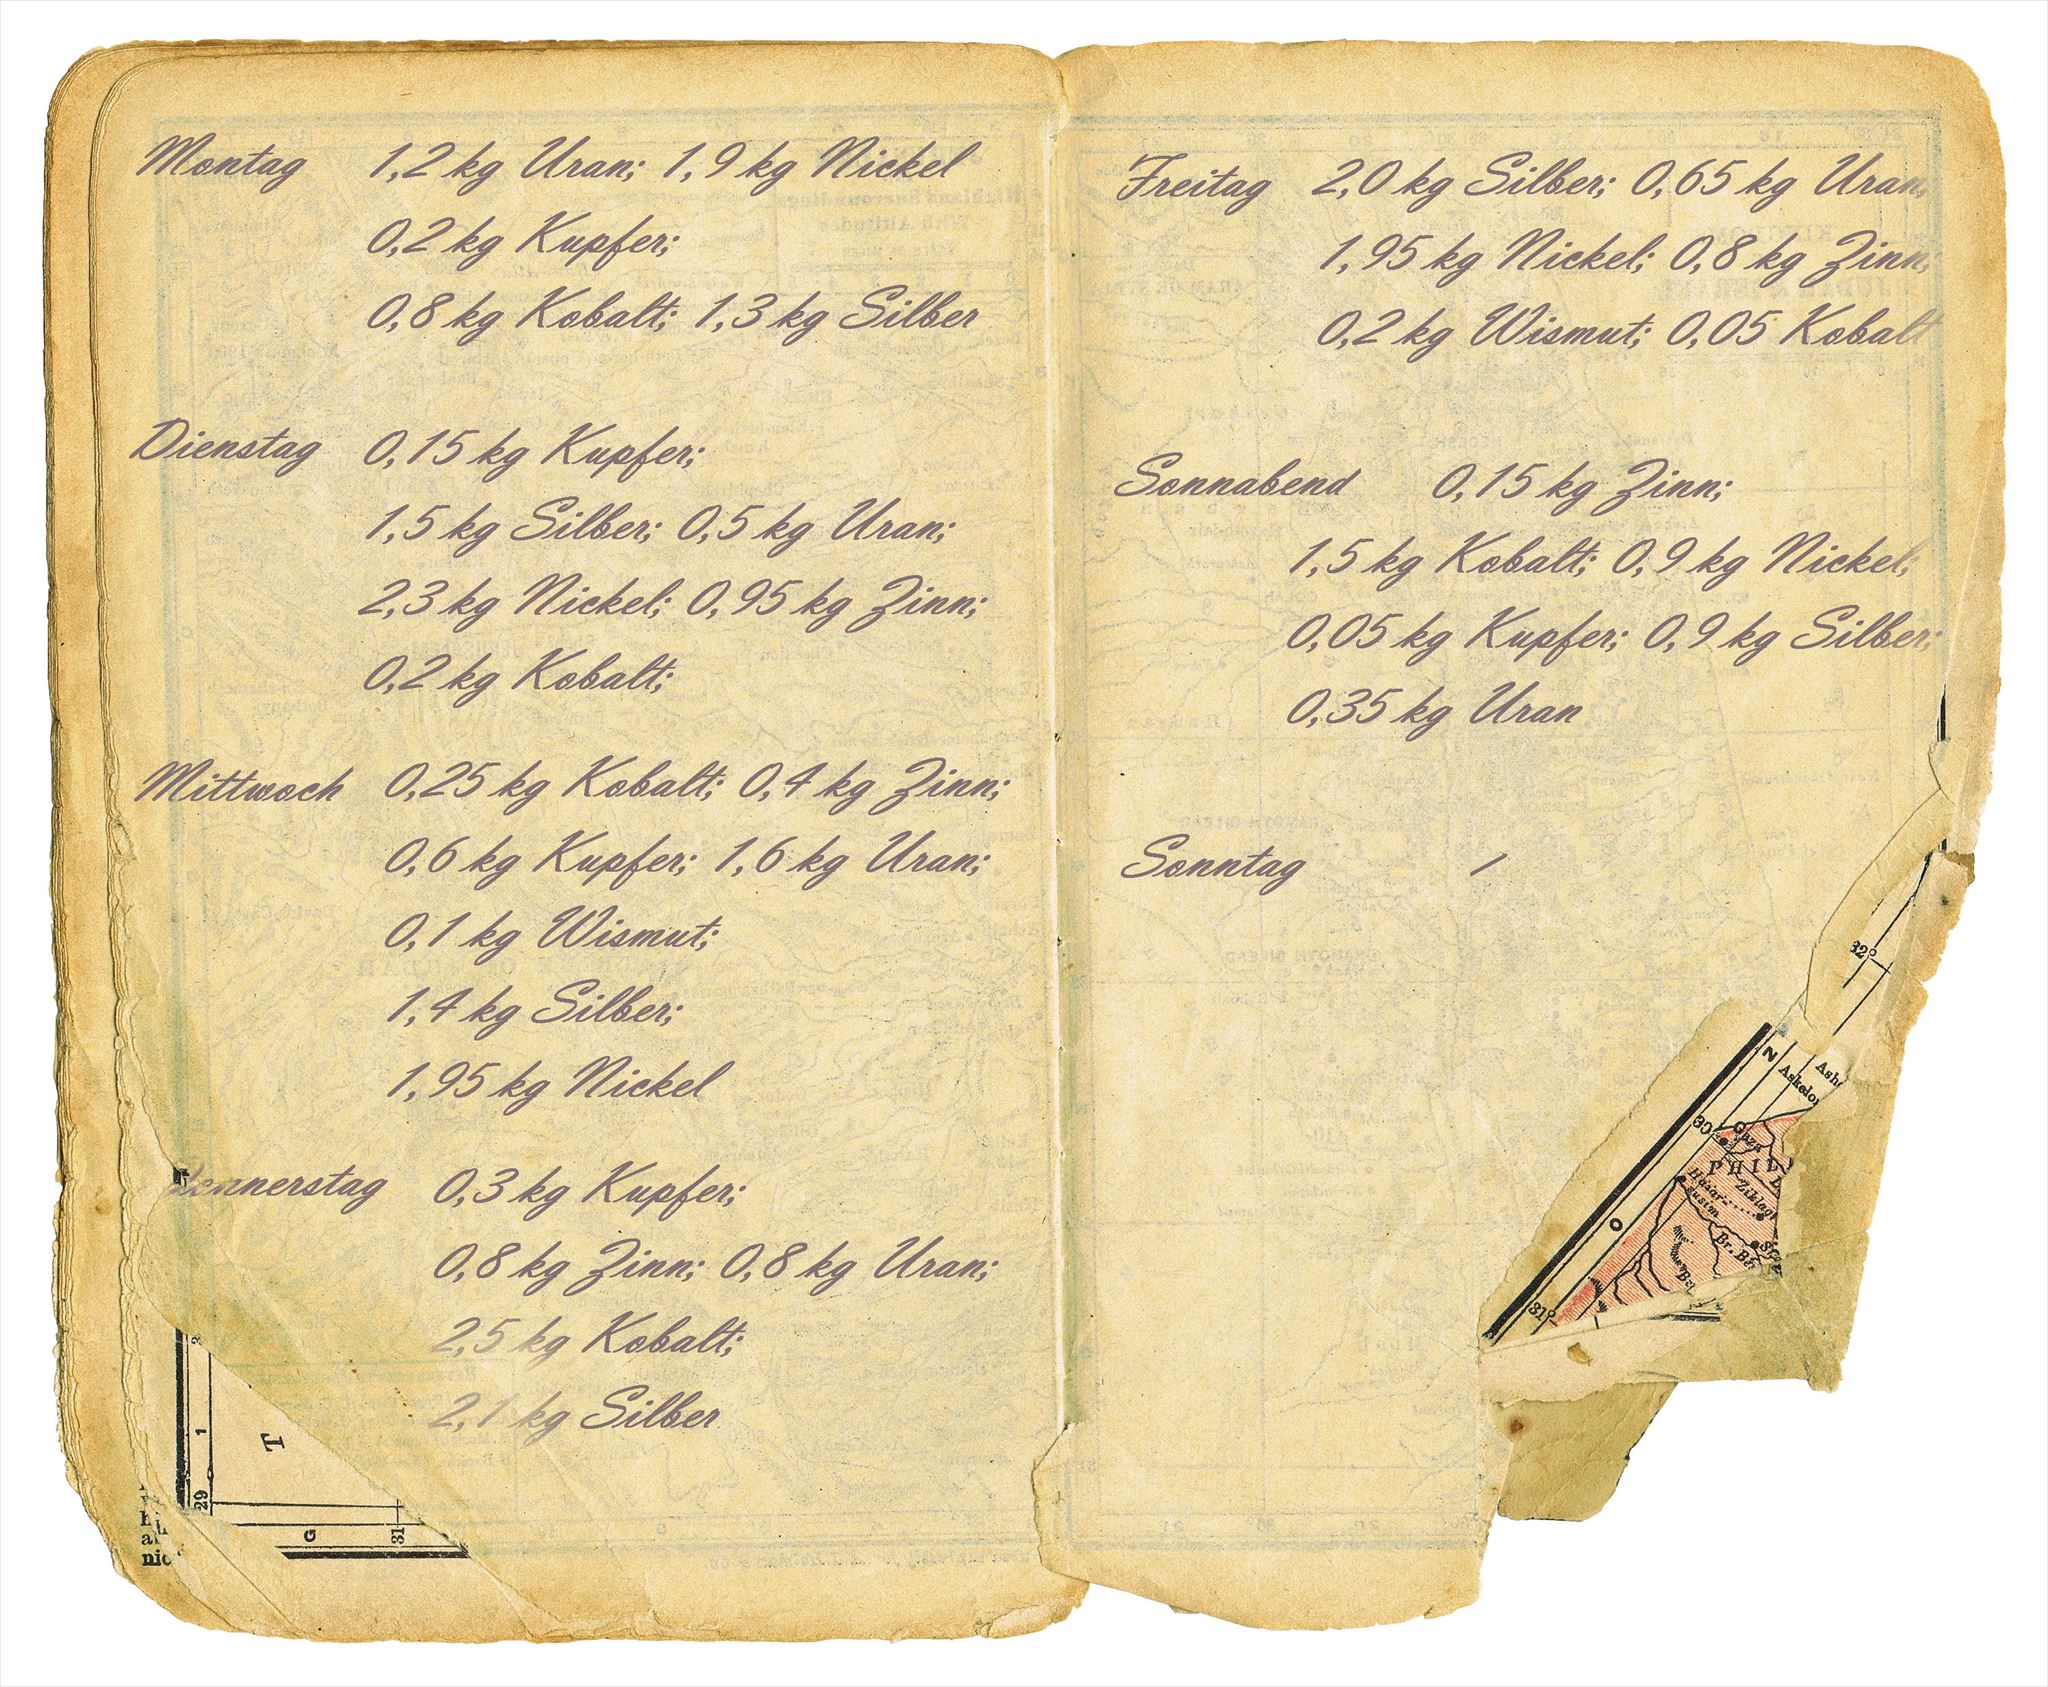 Montag 1,2 kg Uran; 1,9 kg Nickel
0,2 kg Kupfer;
0,8 kg Kobalt; 1,3 kg Silber
Dienstag 0,15 kg Kupfer;
1,5 kg Silber; 0,5 kg Uran;
2,3 kg Nickel; 0,95 kg Zinn;
0,2 kg Kobalt;
Mittwoch 0,25 kg Kobalt; 0,4 kg Zinn;
0,6 kg Kupfer; 1,6 kg Uran;
0,1 kg Wismut;
1,4 kg Silber;
1,95 kg Nickel
Donnerstag 0,3 kg Kupfer;
0,8 kg Zinn; 0,8 kg Uran;
2,5 kg Kobalt;
2,1 kg Silber
1
T
29
G
31
nic
Freitag 2,0 kg Silber; 0,65 kg Uran;
1,95 kg Nickel; 0,8 kg Zinn;
0,2 kg Wismut; 0,05 Kobalt
Sonnabend 0,15 kg Zinn;
1,5 kg Kobalt; 0,9 kg Nickel;
0,05 kg Kupfer; 0,9 kg Silber;
0,35 kg Uran
Sonntag /
32°
N
Ash
Askelo
30
Gaza
PHIL
Ziklag
Hazar
susim
O
Br. Be
31°